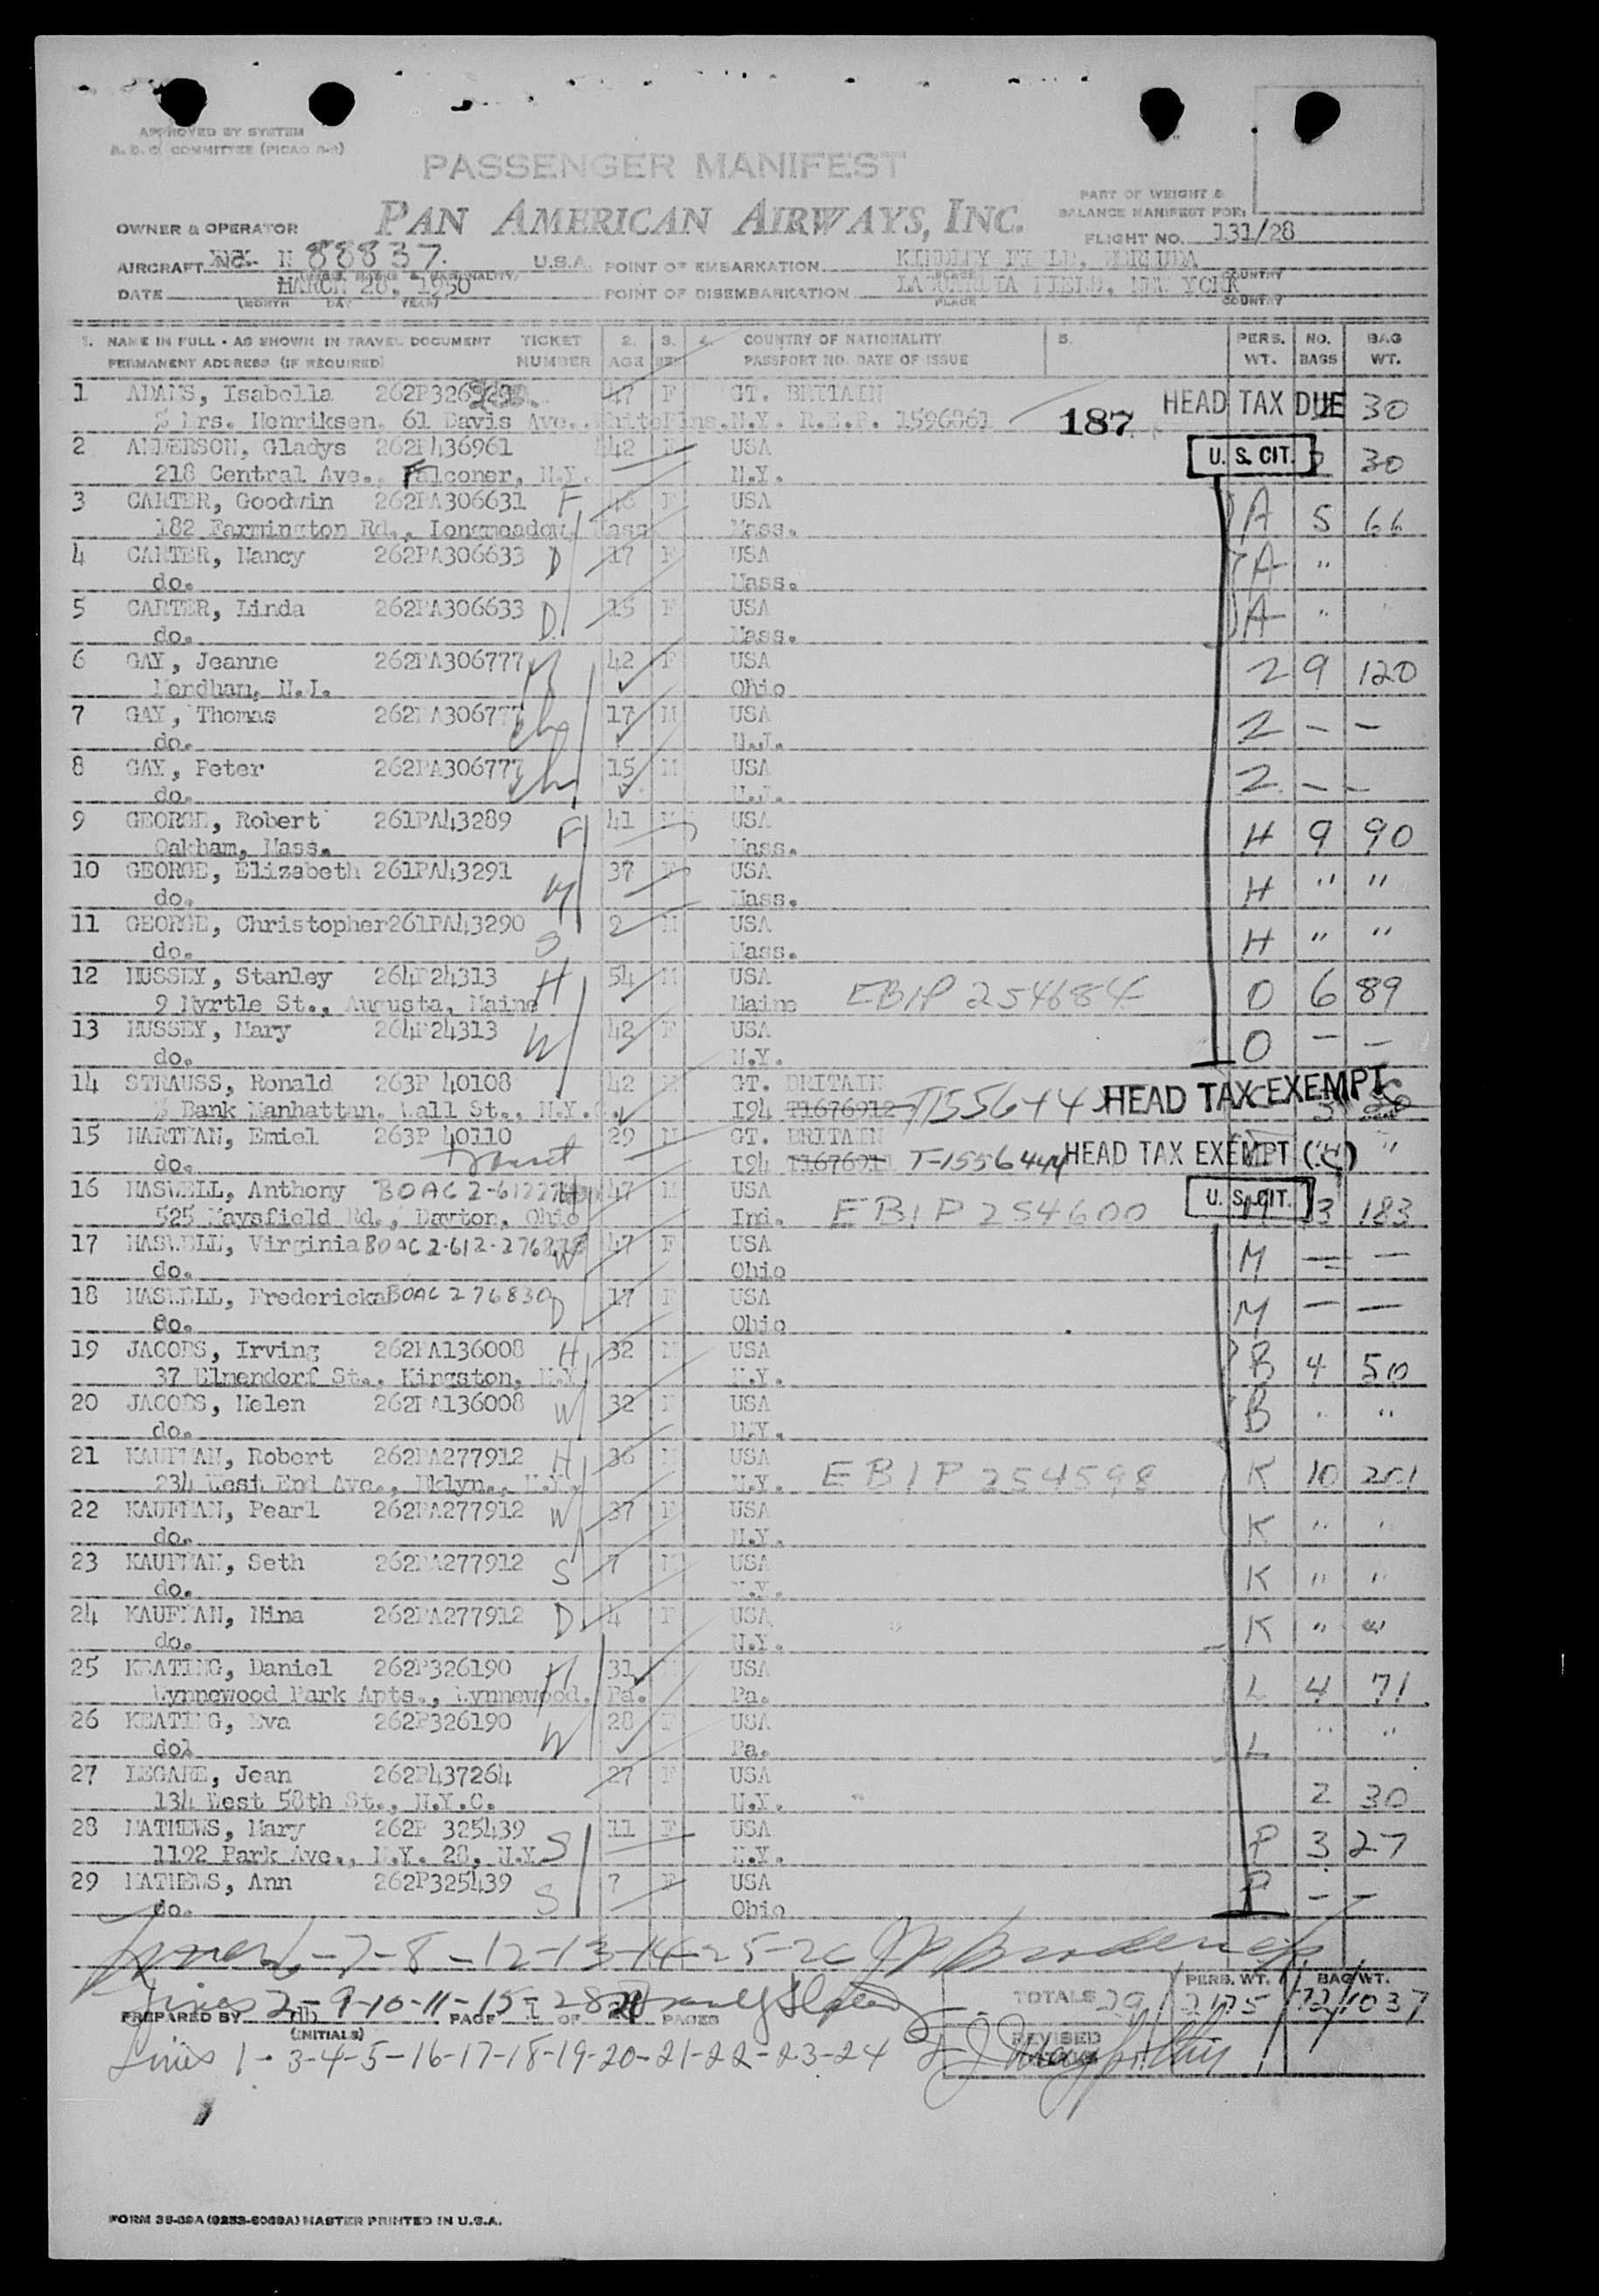 APPROVED BY SYSTEM
B. D. C. COMMITTEE (PICAO 8-2)
PASSENGER MANIFEST
PAN AMERICAN AIRWAYS, INC.
PART OF WEIGHT &
BALANCE MANIFEST FOR:
OWNER & OPERATOR
FLIGHT NO. 131/28
AIRCRAFT N 88837 U.S.A. POINT OF EMBARKATION KINDLEY FIELD, BERMUDA
PLACE COUNTRY
DATE MARCH 28, 1950 POINT OF DISEMBARKATION LAGUARDIA FIELD, NEW YORK
(MONTH DAY YEAR) PLACE COUNTRY
1. NAME IN FULL - AS SHOWN IN TRAVEL DOCUMENT TICKET 2. 3. 4. COUNTRY OF NATIONALITY 5. PERS. NO. BAG
PERMANENT ADDRESS (IF REQUIRED) NUMBER AGE SEX PASSPORT NO. DATE OF ISSUE WT. BAGS WT.
1 ADAMS, Isabella 47 F GT. BRITAIN HEAD TAX DUE 30
% Mrs. Henriksen, 61 Davis Ave., White Plns, N.Y. R.E.P. 1596861 187
2 ANDERSON, Gladys 262P436961 42 F USA U. S. CIT. 30
218 Central Ave., Falconer, N.Y. N.Y.
3 CARTER, Goodwin 262PA306631 F 46 F USA A 5 66
182 Farmington Rd., Longmeadow, Mass. Mass.
4 CARTER, Nancy 262PA306633 D 17 F USA A "
do. Mass.
5 CARTER, Linda 262PA306633 D 15 F USA A "
do. Mass.
6 GAY, Jeanne 262PA306777 M 42 F USA 2 9 120
Mendham, N.J. Ohio
7 GAY, Thomas 262PA306777 ch 17 M USA 2 — —
do. N.J.
8 GAY, Peter 262PA306777 ch 15 M USA 2 — —
do. N.J.
9 GEORGE, Robert 261PA43289 F 41 M USA H 9 90
Oakham, Mass. Mass.
10 GEORGE, Elizabeth 261PA43291 M 37 F USA H " "
do. Mass.
11 GEORGE, Christopher 261PA43290 S 2 M USA H " "
do. Mass.
12 HUSSEY, Stanley 264P24313 H 54 M USA O 6 89
9 Myrtle St., Augusta, Maine Maine EBIP 254684
13 HUSSEY, Mary 264P24313 W 42 F USA O — —
do. N.Y.
14 STRAUSS, Ronald 263P 40108 42 M GT. BRITAIN HEAD TAX EXEMPT
% Bank Manhattan, Wall St., N.Y.C. I94 T1676912 T155644 3
15 HARTMAN, Emiel 263P 40110 29 M GT. BRITAIN HEAD TAX EXEMPT
do. transit I94 T-155644
16 HASWELL, Anthony BOAC 2-612 H 47 M USA U. S. CIT. M 13 183
525 Maysfield Rd., Dayton, Ohio Ind. EBIP 254600
17 HASWELL, Virginia BOAC 2-612-276 W 47 F USA M — —
do. Ohio
18 HASWELL, Fredericka BOAC 276830 D 17 F USA M — —
do. Ohio
19 JACOBS, Irving 262PA136008 H 32 M USA B 4 50
37 Elmendorf St., Kingston, N.Y. N.Y.
20 JACOBS, Helen 262PA136008 W 32 F USA B " "
do. N.Y.
21 KAUFMAN, Robert 262PA277912 H 36 M USA K 10 201
234 West End Ave., Bklyn., N.Y. N.Y. EBIP 254598
22 KAUFMAN, Pearl 262PA277912 W 37 F USA K " "
do. N.Y.
23 KAUFMAN, Seth 262PA277912 S 7 M USA K " "
do. N.Y.
24 KAUFMAN, Nina 262PA277912 D 4 F USA K " "
do. N.Y.
25 KEATING, Daniel 262P326190 H 31 M USA L 4 71
Wynnewood Park Apts., Wynnewood, Pa. Pa.
26 KEATING, Eva 262P326190 W 28 F USA L " "
do. Pa.
27 LEGARE, Jean 262P437264 27 F USA 2 30
134 West 58th St., N.Y.C. N.Y.
28 MATHEWS, Mary 262P 325439 S 11 F USA P 3 27
1192 Park Ave., N.Y. 28, N.Y. N.Y.
29 MATHEWS, Ann 262P325439 S 7 F USA P — —
do. Ohio
Lines 6-7-8-12-13-14-25-26
PERS. WT. BAG WT.
Lines 2-9-10-11-15-28-29
TOTALS 29 2175 72/1037
PREPARED BY PAGE 1 OF PAGES
(INITIALS)
REVISED
Lines 1-3-4-5-16-17-18-19-20-21-22-23-24
FORM 36-89A (9253-6068A) MASTER PRINTED IN U.S.A.